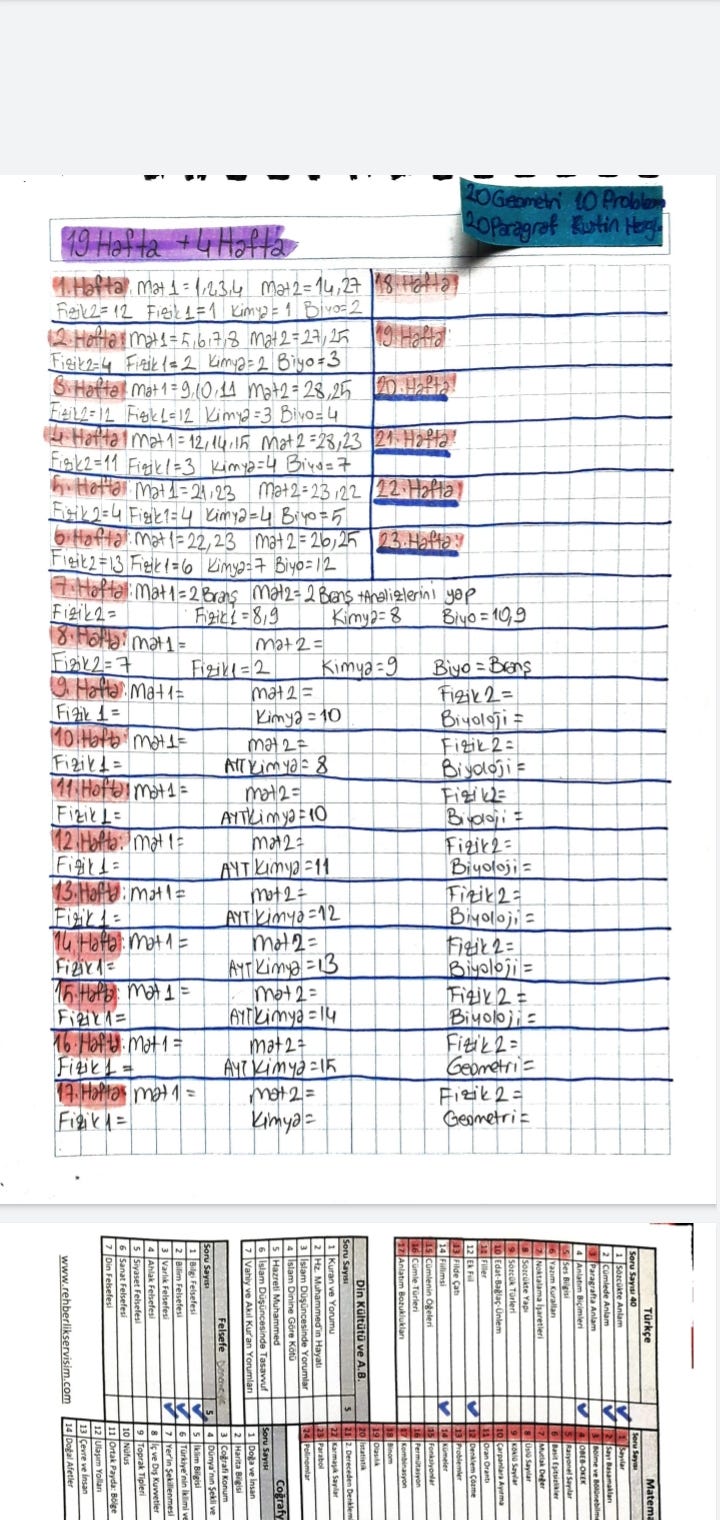 20 Geometri 10 Problem
20 Paragraf Rutin Heg
19 Hafta + 4 Hafta
1. Hafta: Mat1 = 1,2,3,4 Mat2 = 14,27
Fizik2 = 12 Fizik1 = 1 Kimya = 1 Biyo = 2
2. Hafta: Mat1 = 5,6,7,8 Mat2 = 27,25
Fizik2 = 4 Fizik1 = 2 Kimya = 2 Biyo = 3
3. Hafta: Mat1 = 9,10,11 Mat2 = 28,25
Fizik2 = 12 Fizik1 = 12 Kimya = 3 Biyo = 4
4. Hafta: Mat1 = 12,14,15 Mat2 = 28,23
Fizik2 = 11 Fizik1 = 3 Kimya = 4 Biyo = 7
5. Hafta: Mat1 = 21,23 Mat2 = 23,22
Fizik2 = 4 Fizik1 = 4 Kimya = 4 Biyo = 5
6. Hafta: Mat1 = 22,23 Mat2 = 26,25
Fizik2 = 13 Fizik1 = 6 Kimya = 7 Biyo = 12
18. Hafta:
19 Hafta:
20. Hafta:
21. Hafta:
22. Hafta:
23. Hafta:
7. Hafta: Mat1 = 2 Branş Mat2 = 2 Branş + Analizlerini yap
Fizik2 = Fizik1 = 8,9 Kimya = 8 Biyo = 10,9
8. Hafta: Mat1 = Mat2 =
Fizik2 = 7 Fizik1 = 2 Kimya = 9 Biyo = Branş
9. Hafta: Mat1 = Mat2 = Fizik2 =
Fizik1 = Kimya = 10 Biyoloji =
10. Hafta: Mat1 = Mat2 = Fizik2 =
Fizik1 = AYT Kimya = 8 Biyoloji =
11. Hafta: Mat1 = Mat2 = Fizik2 =
Fizik1 = AYT Kimya = 10 Biyoloji =
12. Hafta: Mat1 = Mat2 = Fizik2 =
Fizik1 = AYT Kimya = 11 Biyoloji =
13. Hafta: Mat1 = Mat2 = Fizik2 =
Fizik1 = AYT Kimya = 12 Biyoloji =
14. Hafta: Mat1 = Mat2 = Fizik2 =
Fizik1 = AYT Kimya = 13 Biyoloji =
15. Hafta: Mat1 = Mat2 = Fizik2 =
Fizik1 = AYT Kimya = 14 Biyoloji =
16. Hafta: Mat1 = Mat2 = Fizik2 =
Fizik1 = AYT Kimya = 15 Geometri =
17. Hafta: Mat1 = Mat2 = Fizik2 =
Fizik1 = Kimya = Geometri =
Türkçe
Soru Sayısı 40
1 Sözcükte Anlam
2 Cümlede Anlam
3 Paragrafta Anlam
4 Anlatım Biçimleri
5 Ses Bilgisi
6 Yazım Kuralları
7 Noktalama İşaretleri
8 Sözcükte Yapı
9 Sözcük Türleri
10 Edat-Bağlaç-Ünlem
11 Fiiller
12 Ek Fiil
13 Fiilde Çatı
14 Fiilimsi
15 Cümlenin Ögeleri
16 Cümle Türleri
17 Anlatım Bozuklukları
Din Kültütü ve A.B.
Soru Sayısı 5
1 Kuran ve Yorumu
2 Hz. Muhammed'in Hayatı
3 İslam Düşüncesinde Yorumlar
4 İslam Dinine Göre Kötü
5 Hazreti Muhammed
6 İslam Düşüncesinde Tasavvuf
7 Vahiy ve Akıl Kur'an Yorumları
Felsefe
Soru Sayısı 5
1 Bilgi Felsefesi
2 Bilim Felsefesi
3 Varlık Felsefesi
4 Ahlak Felsefesi
5 Siyaset Felsefesi
6 Sanat Felsefesi
7 Din Felsefesi
www.rehberlikservisim.com
Matema
Soru Sayısı
1 Sayılar
2 Sayı Basamakları
3 Bölme ve Bölünebilme
4 OBEB-OKEK
5 Rasyonel Sayılar
6 Basit Eşitsizlikler
7 Mutlak Değer
8 Üslü Sayılar
9 Köklü Sayılar
10 Çarpanlara Ayırma
11 Oran Orantı
12 Denklem Çözme
13 Problemler
14 Kümeler
15 Fonksiyonlar
16 Permütasyon
17 Kombinasyon
18 Binom
19 Olasılık
20 İstatistik
21 2. Dereceden Denklem
22 Karmaşık Sayılar
23 Parabol
24 Polinomlar
Coğrafy
Soru Sayısı
1 Doğa ve İnsan
2 Harita Bilgisi
3 Coğrafi Konum
4 Dünya'nın Şekli ve
5 İklim Bilgisi
6 Türkiye'nin İklimi ve
7 Yer'in Şekillenmesi
8 İç ve Dış Kuvvetler
9 Toprak Tipleri
10 Nüfus
11 Ortak Payda: Bölge
12 Ulaşım Yolları
13 Çevre ve İnsan
14 Doğal Afetler